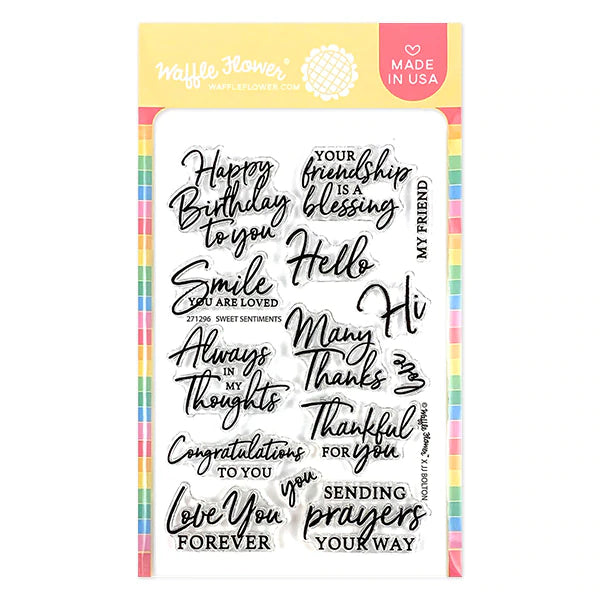 Waffle Flower
WAFFLEFLOWER.COM
MADE
IN USA
Happy
Birthday
to you
YOUR
friendship
IS A
blessing
MY FRIEND
Hello
Smile
YOU ARE LOVED
Hi
271296 SWEET SENTIMENTS
Many
Thanks
love
Always
IN
MY
Thoughts
Thankful
FOR you
© Waffle Flower X JJ BOLTON
Congratulations
TO YOU
you
Love You
FOREVER
SENDING
prayers
YOUR WAY